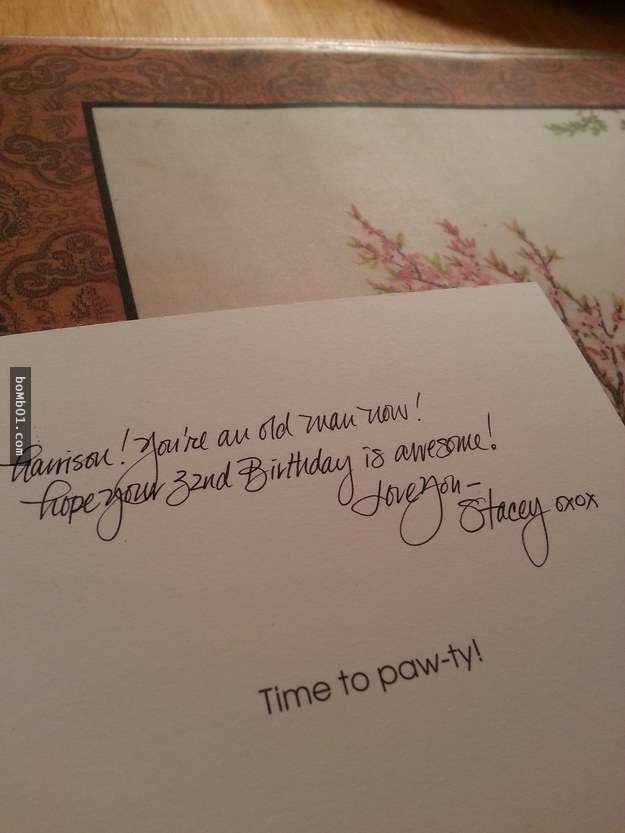 Harrison! You're an old man now!
hope your 32nd Birthday is awesome!
Love you -
Stacey oxox
Time to paw-ty!
boMb01.com